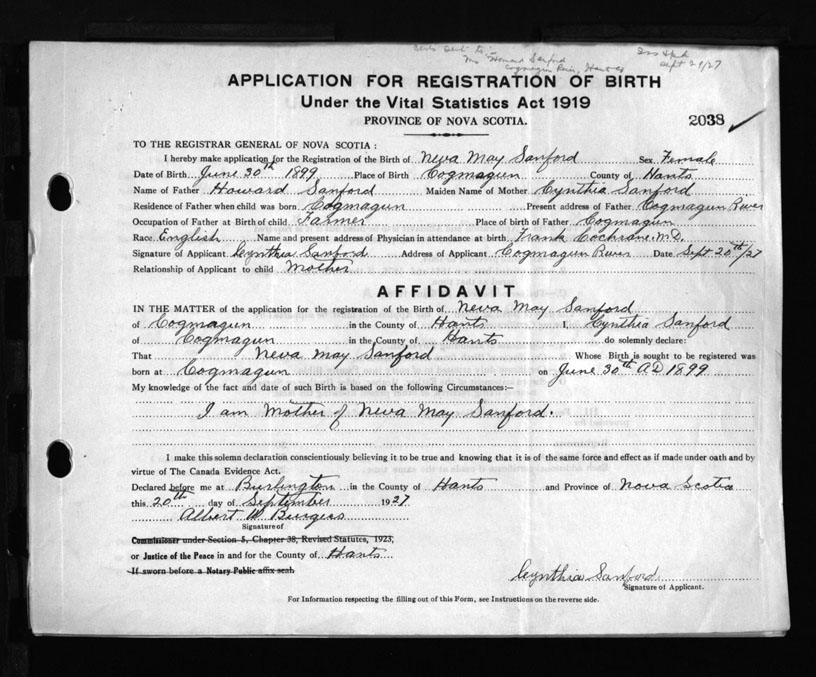 Cert. Sent to:-
Mrs Howard Sanford
Cogmagun River, Hants Co
Sept 29/27
APPLICATION FOR REGISTRATION OF BIRTH
Under the Vital Statistics Act 1919
PROVINCE OF NOVA SCOTIA.
2038
TO THE REGISTRAR GENERAL OF NOVA SCOTIA :
I hereby make application for the Registration of the Birth of Neva May Sanford Sex Female
Date of Birth June 30th 1899 Place of Birth Cogmagun County of Hants
Name of Father Howard Sanford Maiden Name of Mother Cynthia Sanford
Residence of Father when child was born Cogmagun Present address of Father Cogmagun River
Occupation of Father at Birth of child Farmer Place of birth of Father Cogmagun
Race English Name and present address of Physician in attendance at birth Frank Cochrane. M.D.
Signature of Applicant Cynthia Sanford Address of Applicant Cogmagun River Date Sept 20th/27
Relationship of Applicant to child Mother
AFFIDAVIT
IN THE MATTER of the application for the registration of the Birth of Neva May Sanford
of Cogmagun in the County of Hants I, Cynthia Sanford
of Cogmagun in the County of Hants do solemnly declare:
That Neva May Sanford Whose Birth is sought to be registered was
born at Cogmagun on June 30th A.D 1899
My knowledge of the fact and date of such Birth is based on the following Circumstances:—
I am Mother of Neva May Sanford.
I make this solemn declaration conscientiously believing it to be true and knowing that it is of the same force and effect as if made under oath and by
virtue of The Canada Evidence Act.
Declared before me at Burlington in the County of Hants and Province of Nova Scotia
this 20th day of September 1927
Albert W Burgess
Signature of
Commissioner under Section 5, Chapter 38, Revised Statutes, 1923,
or Justice of the Peace in and for the County of Hants
If sworn before a Notary Public affix seal.
Cynthia Sanford
Signature of Applicant.
For Information respecting the filling out of this Form, see Instructions on the reverse side.